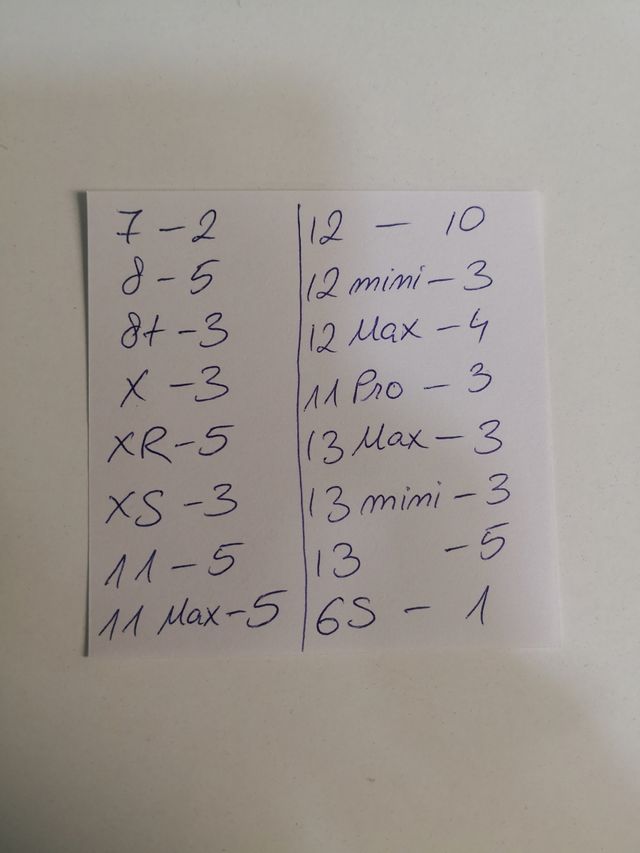 7 - 2
8 - 5
8+ - 3
X - 3
XR - 5
XS - 3
11 - 5
11 Max - 5
12 - 10
12 mini - 3
12 Max - 4
11 Pro - 3
13 Max - 3
13 mini - 3
13 - 5
6S - 1